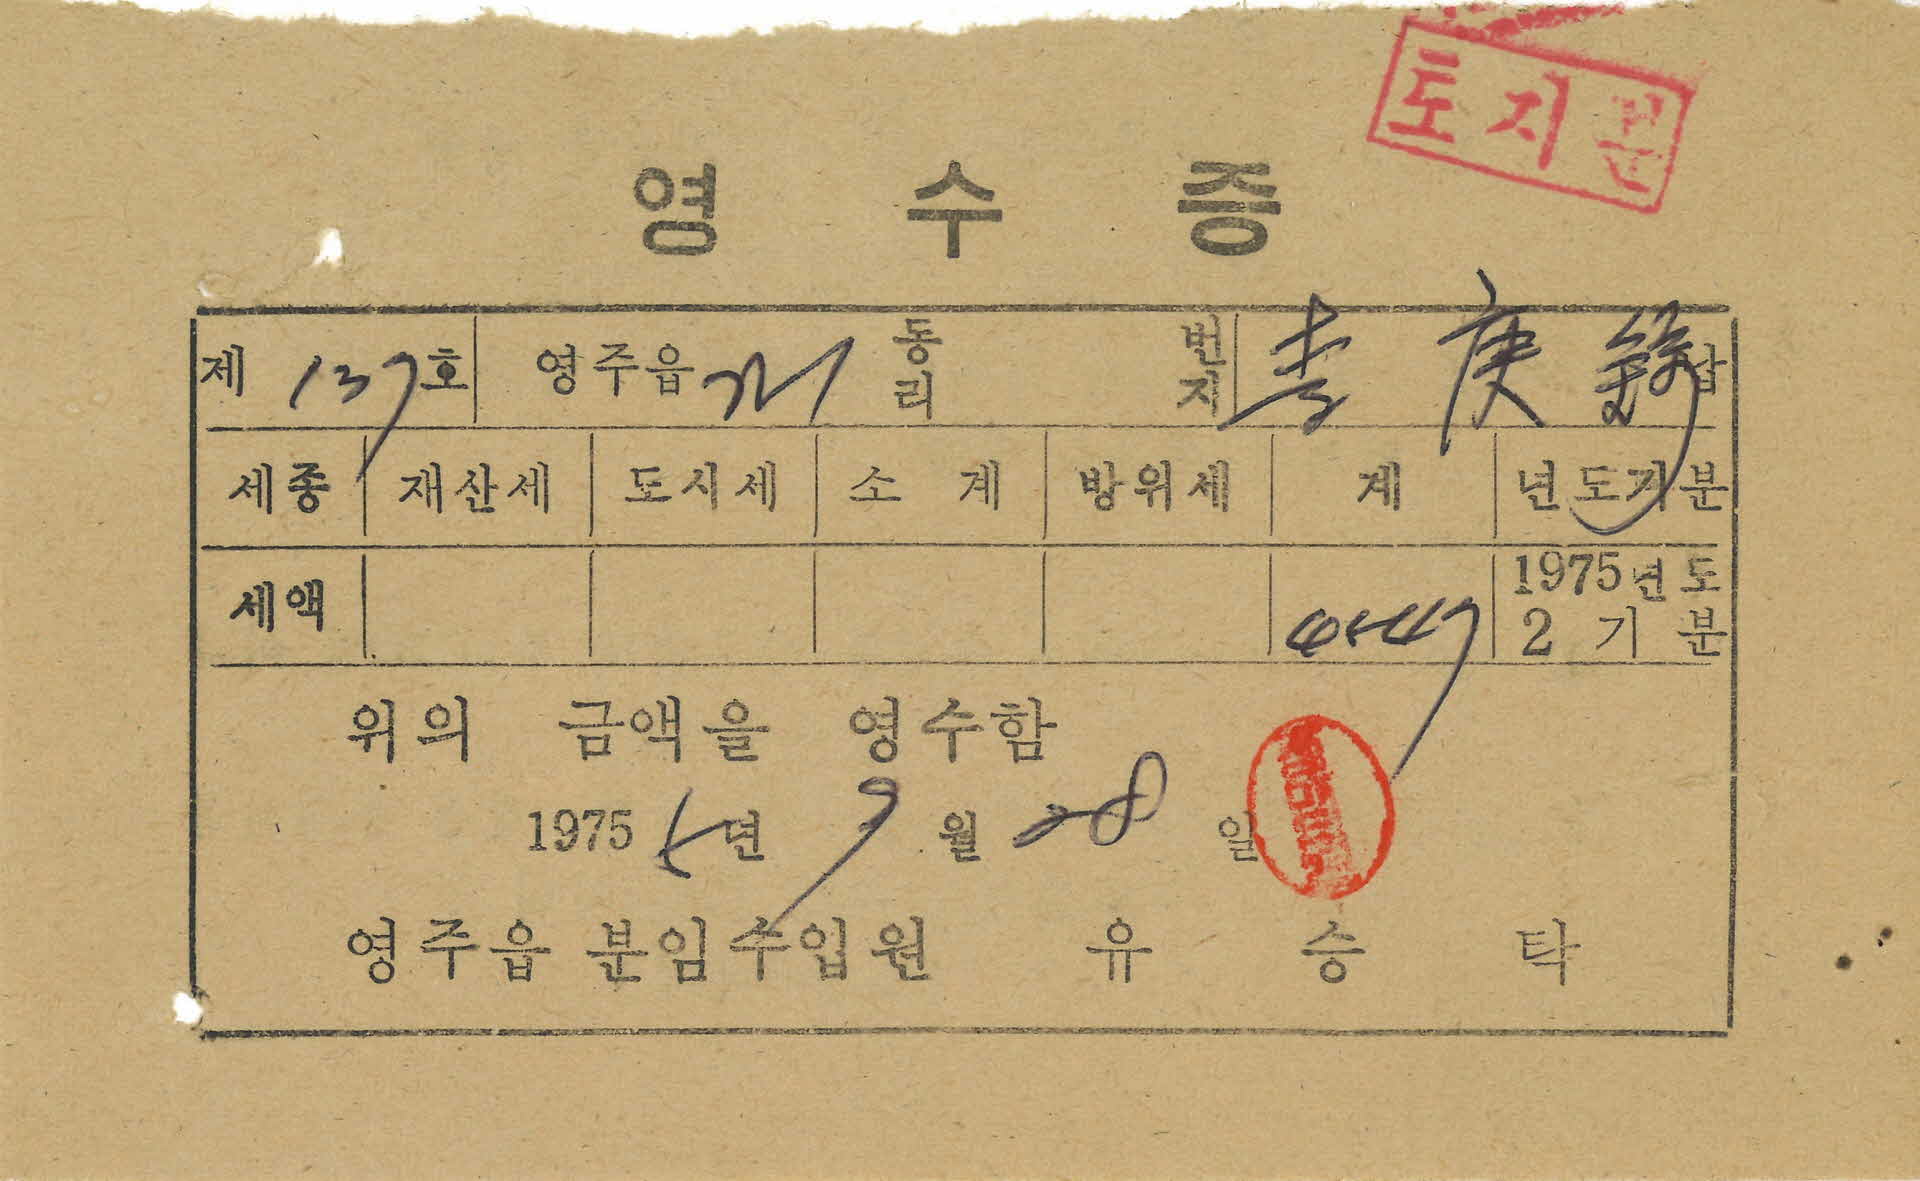 토지분
영수증
제 137 호 영주읍 동리 번지 李庚 납
세종 재산세 도시세 소계 방위세 계 년도기분
세액 1975년도 2기분
위의 금액을 영수함
1975년 9월 28일
영주읍 분임수입원 유승탁